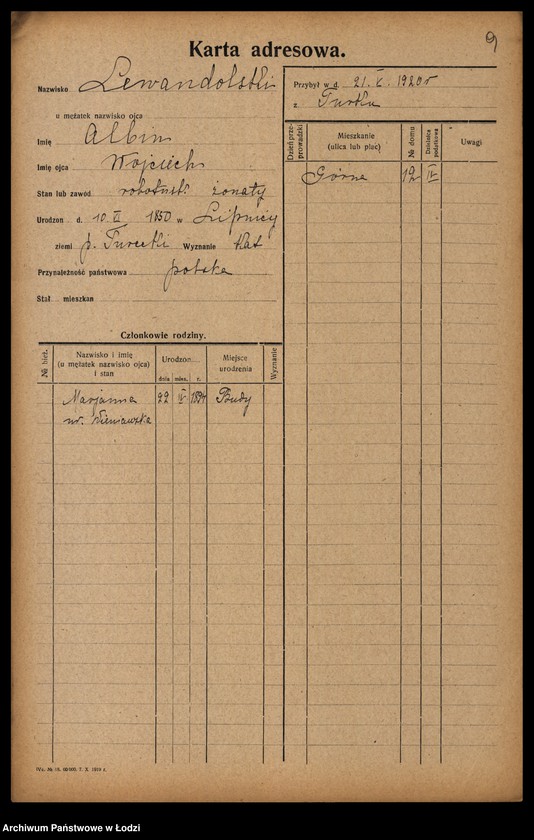 9
Karta adresowa.
Nazwisko Lewandolski
u mężatek nazwisko ojca
Imię Albin
Imię ojca Wojciech
Stan lub zawód robotnik żonaty
Urodzon d. 10 II 1850 w Lipnicy
ziemi p. Turecki Wyznanie kat
Przynależność państwowa polska
Stał. mieszkan
Przybył w d. 21. X. 1920 r
z Turku
Dzień przeprowadzki
Mieszkanie
(ulica lub plac)
№ domu
Dzielnica podatkowa
Uwagi
Górna 12 IV
Członkowie rodziny.
№ bież.
Nazwisko i imię
(u mężatek nazwisko ojca)
i stan
Urodzon
dnia mies. r.
Miejsce
urodzenia
Wyznanie
Marjanna 22 IV Budy
ur.
Wz. № 15. 7. X. 1919 r.
Archiwum Państwowe w Łodzi